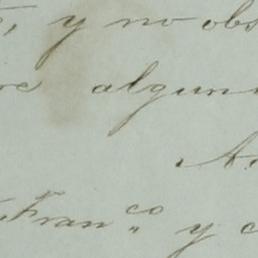 y no obs
algun
A.
Fran.co y c